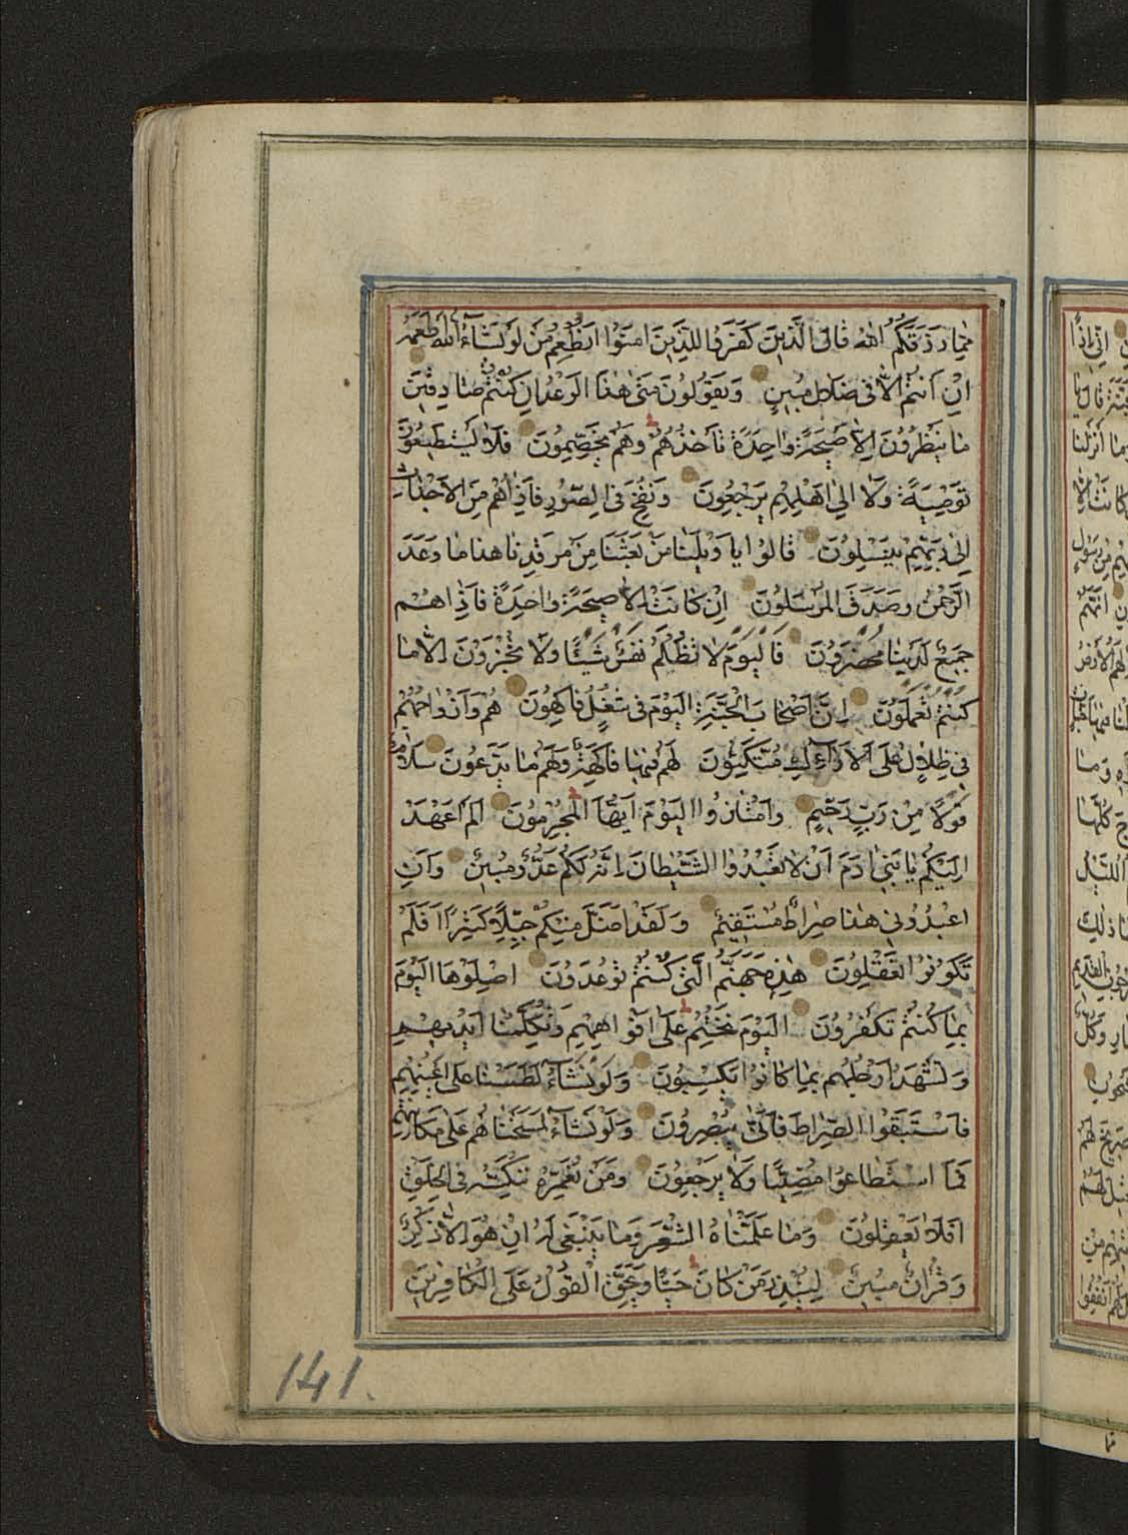 مِمَّا رَزَقَكُمُ اللهُ قَالَ الَّذِينَ كَفَرُوا لِلَّذِينَ اٰمَنُوا اَنُطْعِمُ مَنْ لَوْ يَشَاءُ اللهُ اَطْعَمَهُ
اِنْ اَنْتُمْ اِلَّا فِى ضَلَالٍ مُبِينٍ وَيَقُولُونَ مَتٰى هٰذَا الْوَعْدُ اِنْ كُنْتُمْ صَادِقِينَ
مَا يَنْظُرُونَ اِلَّا صَيْحَةً وَاحِدَةً تَأْخُذُهُمْ وَهُمْ يَخِصِّمُونَ فَلَا يَسْتَطِيعُونَ
تَوْصِيَةً وَلَا اِلٰى اَهْلِهِمْ يَرْجِعُونَ وَنُفِخَ فِى الصُّورِ فَاِذَا هُمْ مِنَ الْاَجْدَاثِ
اِلٰى رَبِّهِمْ يَنْسِلُونَ قَالُوا يَا وَيْلَنَا مَنْ بَعَثَنَا مِنْ مَرْقَدِنَا هٰذَا مَا وَعَدَ
الرَّحْمٰنُ وَصَدَقَ الْمُرْسَلُونَ اِنْ كَانَتْ اِلَّا صَيْحَةً وَاحِدَةً فَاِذَا هُمْ
جَمِيعٌ لَدَيْنَا مُحْضَرُونَ فَالْيَوْمَ لَا تُظْلَمُ نَفْسٌ شَيْئًا وَلَا تُجْزَوْنَ اِلَّا مَا
كُنْتُمْ تَعْمَلُونَ اِنَّ اَصْحَابَ الْجَنَّةِ الْيَوْمَ فِى شُغُلٍ فَاكِهُونَ هُمْ وَاَزْوَاجُهُمْ
فِى ظِلَالٍ عَلَى الْاَرَائِكِ مُتَّكِئُونَ لَهُمْ فِيهَا فَاكِهَةٌ وَلَهُمْ مَا يَدَّعُونَ سَلَامٌ
قَوْلًا مِنْ رَبٍّ رَحِيمٍ وَامْتَازُوا الْيَوْمَ اَيُّهَا الْمُجْرِمُونَ اَلَمْ اَعْهَدْ
اِلَيْكُمْ يَا بَنِى اٰدَمَ اَنْ لَا تَعْبُدُوا الشَّيْطَانَ اِنَّهُ لَكُمْ عَدُوٌّ مُبِينٌ وَاَنِ
اعْبُدُونِى هٰذَا صِرَاطٌ مُسْتَقِيمٌ وَلَقَدْ اَضَلَّ مِنْكُمْ جِبِلًّا كَثِيرًا اَفَلَمْ
تَكُونُوا تَعْقِلُونَ هٰذِهِ جَهَنَّمُ الَّتِى كُنْتُمْ تُوعَدُونَ اِصْلَوْهَا الْيَوْمَ
بِمَا كُنْتُمْ تَكْفُرُونَ اَلْيَوْمَ نَخْتِمُ عَلٰى اَفْوَاهِهِمْ وَتُكَلِّمُنَا اَيْدِيهِمْ
وَتَشْهَدُ اَرْجُلُهُمْ بِمَا كَانُوا يَكْسِبُونَ وَلَوْ نَشَاءُ لَطَمَسْنَا عَلٰى اَعْيُنِهِمْ
فَاسْتَبَقُوا الصِّرَاطَ فَاَنّٰى يُبْصِرُونَ وَلَوْ نَشَاءُ لَمَسَخْنَاهُمْ عَلٰى مَكَانَتِهِمْ
فَمَا اسْتَطَاعُوا مُضِيًّا وَلَا يَرْجِعُونَ وَمَنْ نُعَمِّرْهُ نُنَكِّسْهُ فِى الْخَلْقِ
اَفَلَا يَعْقِلُونَ وَمَا عَلَّمْنَاهُ الشِّعْرَ وَمَا يَنْبَغِى لَهُ اِنْ هُوَ اِلَّا ذِكْرٌ
وَقُرْاٰنٌ مُبِينٌ لِيُنْذِرَ مَنْ كَانَ حَيًّا وَيَحِقَّ الْقَوْلُ عَلَى الْكَافِرِينَ
141.